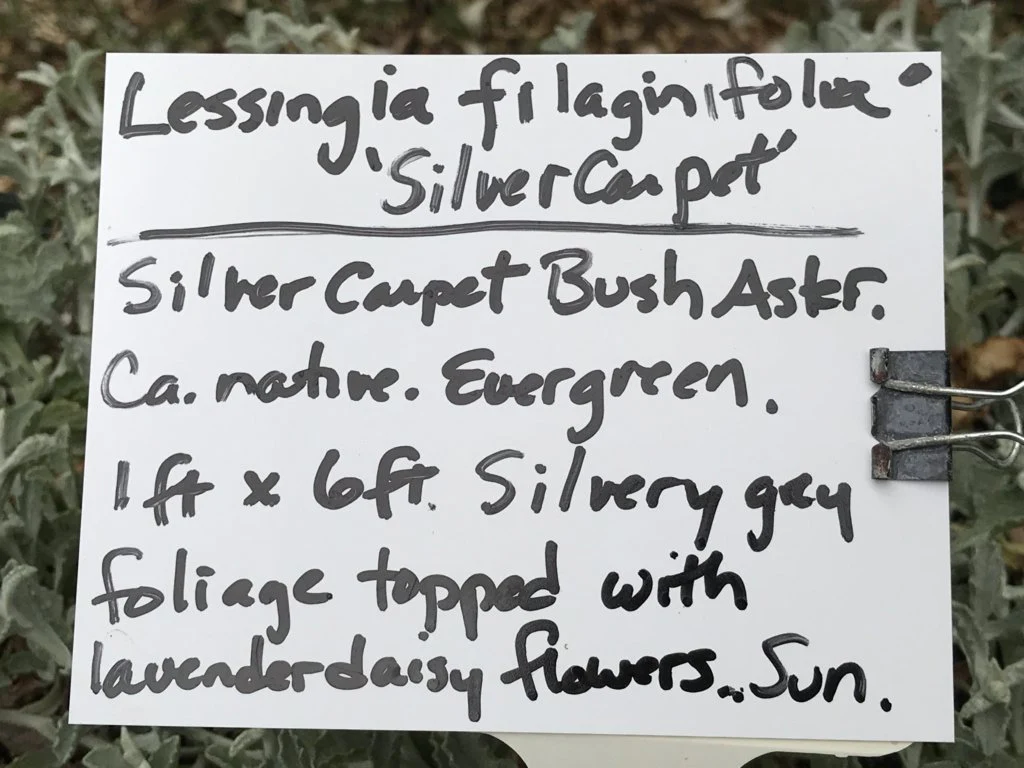 Lessingia filaginifolia
'Silver Carpet'
Silver Carpet Bush Aster.
Ca. native. Evergreen.
1ft x 6ft. Silvery grey
foliage topped with
lavender daisy flowers.. Sun.